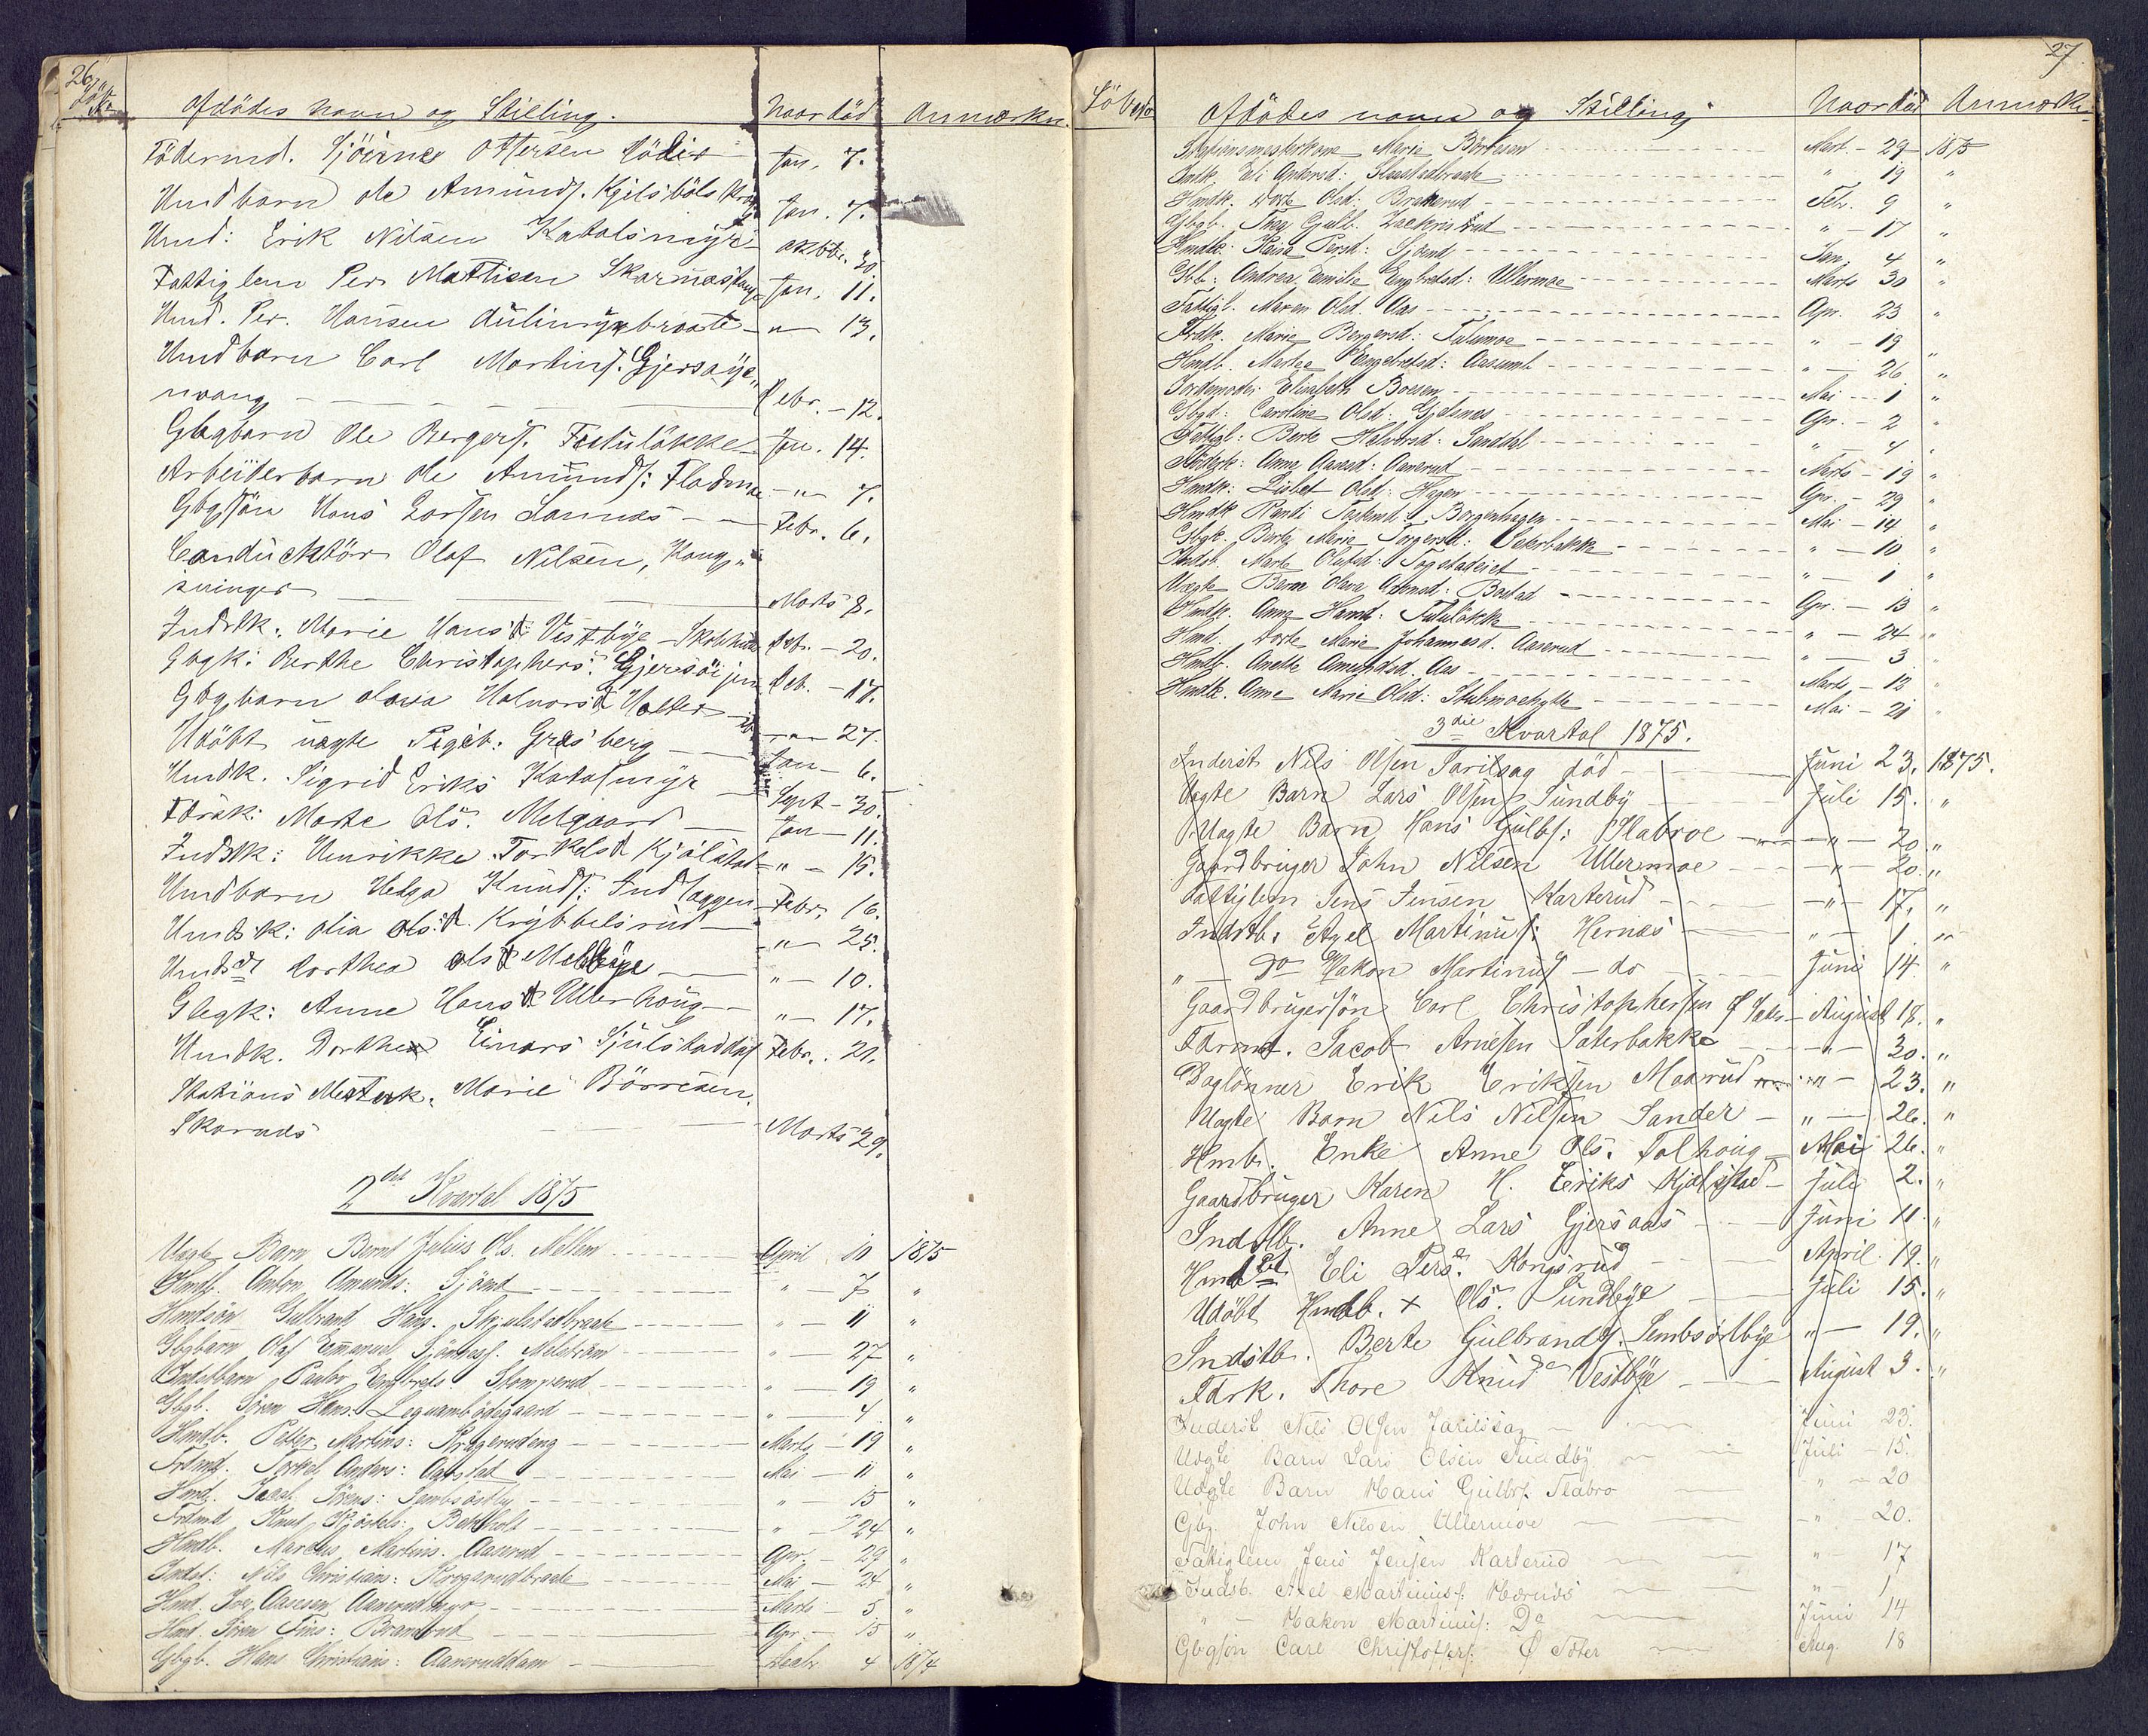 26
Löb No
Afdödes Navn og Stilling. Naar död Anmærkn.
Födermd. Ottersen Jan. 7.
Hmdbarn Ole Amunds. Kjelsböls Jan. 7.
Hmd: Erik Nilsen Katalsmyr Oktbr. 30.
Fattiglem Per Mattisen Skarnæs Jan. 11.
Hmd. Per Hansen Aulimyrbraate " 13.
Hmdbarn Carl Martins. Gjersøye„
nvang Febr. – 12.
Gbgbarn Ole Bergers. Jan. 14.
Arbeiderbarn Ole Amunds: Fladmoe – " 7.
Gbgsön Hans Larsen Sannæs Febr. 6.
Conducktör Olaf Nilsen, Kong„
svinger Marts 8.
Indstk: Marie Hansd: Vestbye Febr. – 20.
Gbgk: Berthe Christophers: Gjersöijen Feb. – 17.
Gbgbarn Olava Halvorsd Holter – " – 27.
Udöbt uægte Pigeb: Græsberg Jan – 6.
Hmdk. Sigrid Eriks Katasmyr Sept – 30.
Marte Ols. Melgaard Jan – 11.
Indstk: Henrikke Torkelsd Kjölstad " – 15.
Hmdbarn Helga Knuds: Febr. 16.
Hmdsk: Olia Olsd. Krybbelsrud " 25.
Dorthea Olsd Mellbye " – 10.
Gbgk: Anne Hansd Ullerhoug " – 17.
Hmdk. Dorthea Einars Febr. 21.
Stations Mesterk. Marie Börresen,
Skarnæs Marts 29.
2det Kvartal 1875
Uægte Barn Bernt Julius Ols. Mellem April 10 1875
Hmdb. Anton Amunds: Sjöend " – 7 "
Hmdsön Gulbrand Hans. Skjulstadbraate " – 11 "
Gbgbarn Olaf Emanuel " – 27 "
Indstbarn Paulus Engbrets. Stomperud " – 19 "
Gbgb. Sören Hans. " – 4 "
Hmdb. Petter Martins: Kroggerudeng Marts – 19 "
Fördmd. Torkel Anders: Mai – 11 "
Hmd. Jacob Sörens: Sembsöstby " – 15 "
Knut " – 24 "
Hmdb. Marcus Martins. Aaserud Apr. – 29 "
Indst: Nils Christians: Kroggerudbraate Mai – 24 "
Hmd. Iver Aasesen Aanerudmyr Marts – 5 "
Hmd. Sören Fins: Brandrud Apr. – 15 "
Gbgb. Hans Christians: Aaneruddam 4 1874
27
Löb No Afdödes navn og Stilling Naar död Anmærkn.
Stationsmesterkone Marie Börresen Mart. – 29 1875
Indk. Eli Andersd: " 19 "
Hmdk. Dorte Olsd: Febr. 9 "
Gbgb. Gulb. Zackrisrud " – 17 "
Hmdk. Kaisa Persd: Sjöend Jan. 4 "
Gbb: Andrea Emilie Engbretsd: Ullermoe Marts 30 "
Fattigl. Maren Olsd. Aas Apr. 23 "
Marie Bergersd: Tulumoe " – 19 "
Hmdb. Marthe Engebretsd: " – 26 "
Jordemoder Elisabeth Boesen Mai – 1 "
Gbgd: Caroline Olsd. Gjelsnes Apr. – 2 "
Fattigl: Berte Halvorsd: Sanddal " 4 "
Anne Aasesd: Aanerud Marts – 19 "
Hmdk: Lisbet Olsd: Hagen Apr. – 29 "
Hmdk Randi Borgenhagen Mai – 14 "
Gbgk. Berte Marie Torgersd: Sæterbakk " – 10 "
Indsb. Marte Olufsd: " – 1 "
Uægte Barn Olava Amundsd: Bostad Apr. – 13 "
Hmdk. Anne Hansd: " – 24 "
Hmd. Dorte Marie Johannesd. Aaserud " 3 "
Hmdb. Anette Amundsd. Aas Marts – 12 "
Hmdk. Anne Marie Olsd: Stubmoehytte Mai – 21 "
3die Kvartal 1875.
Inderst Nils Olsen Tarilsag död Juni 23. 1875.
Uægte Barn Lars Olsen Sundby Juli 15. "
Uægte Barn Hans Gulbs: Flabroe – " – 20. "
Gaardbruger John Nilsen Ullermoe – " – 20. "
Fattiglem Jens Jensen Karterud – " – 17. "
Indstb. Axel Martinus: Hernæs " – 1 "
" – Do Hakon Martinus – do Juni 14. "
Gaardbrugersön Carl Christophersen Ø Sæter – August 18. "
Jacob Arnesen Säterbakke – " – 30. "
Daglönner Erik Eriksen Maarud " – 23. "
Uægte Barn Nils Nilsen Sander – " – 26. "
Hmb. Enke Anne Ols: Tolhoug – Mai 26. "
Gaardbruger Karen H. Eriks Kjölstad – Juli 2. "
Indstb. Anne Lars Gjersaas Juni 11. "
Eli Pers. Kongsrud April 19. "
Udöbt Hmdb. x Ols. Sundbye Juli 15. "
Indstb. Berte Gulbrands. Sembsöstbye " – 19. "
Thore Knud Vestbye August 3. "
Inderst Nils Olsen Jarilsag Juni 23.
Uægte Barn Lars Olsen Sundby Juli – 15.
Uægte Barn Hans Gulbr. Flabro " – 20
Gbg. John Nilsen Ullermoe – " – 20.
Fattiglem Jens Jensen Karterud " 17
Indsb. Axel Martinius: Hærnæs " 1
" – Hakon Martinus: Do Juni 14
Gbgsön Carl Christoffers: Ø Säter Aug. 18